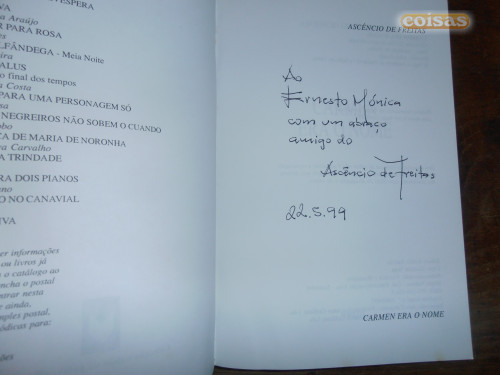 ESPERA
VA
a Araújo
R PARA ROSA
es
LFÂNDEGA - Meia Noite
eira
ALUS
o final dos tempos
a Costa
PARA UMA PERSONAGEM SÓ
na
NEGREIROS NÃO SOBEM O CUANDO
obo
CA DE MARIA DE NORONHA
va Carvalho
A TRINDADE
RA DOIS PIANOS
ano
O NO CANAVIAL
IVA
er informações
ou livros já
o catálogo ao
ncha o postal
arar nesta
e ainda,
mples postal,
ódicas para:
ões
coisas
ASCÊNCIO DE FREITAS
Ao
Ernesto Mónica
com um abraço
amigo do
Ascêncio de Freitas
22.5.99
CARMEN ERA O NOME